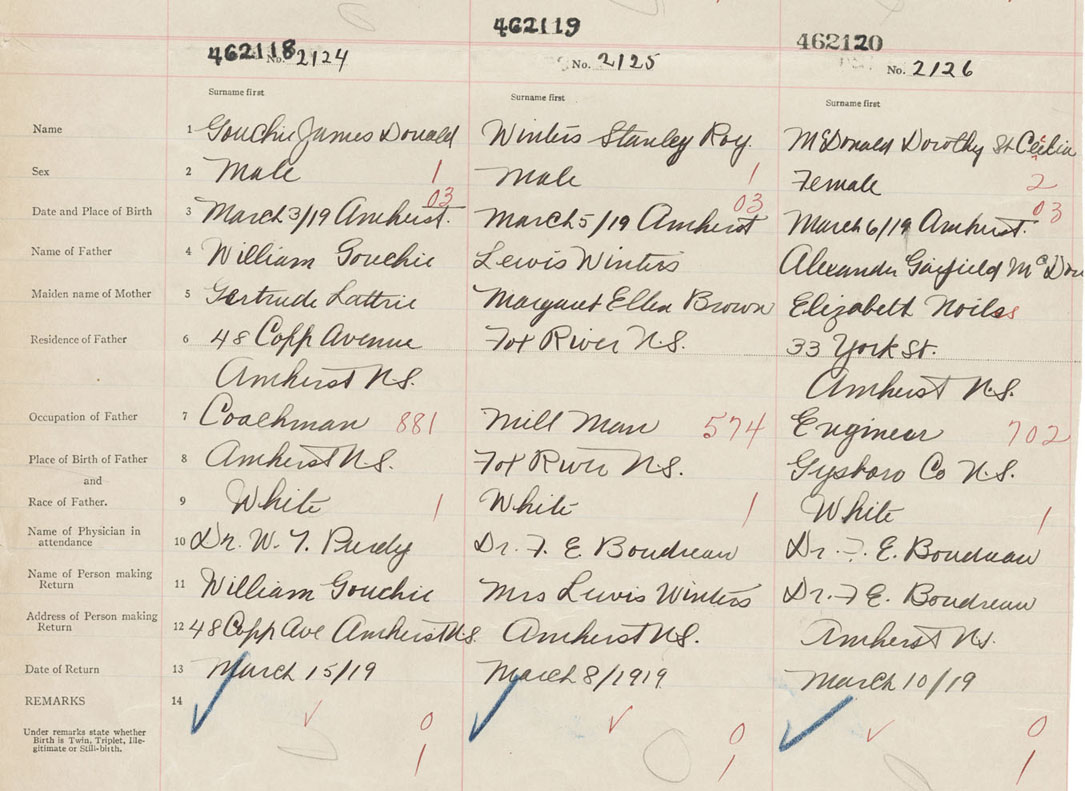 462118 462119 462120
No. 2124 No. 2125 No. 2126
Surname first Surname first Surname first
Name 1 Gouchie James Donald Winters Stanley Roy. McDonald Dorothy St Cecilia
Sex 2 Male 1 Male 1 Female 2
03 03 03
Date and Place of Birth 3 March 3/19 Amherst. March 5/19 Amherst March 6/19 Amherst.
Name of Father 4 William Gouchie Lewis Winters Alexander Garfield McDon
Maiden name of Mother 5 Gertrude Lattrie Margaret Ellen Brown Elizabeth Noiles
Residence of Father 6 48 Copp Avenue Fox River N.S. 33 York St.
Amherst N.S. Amherst N.S.
Occupation of Father 7 Coachman 881 Mill Man 574 Engineer 702
Place of Birth of Father 8 Amherst N.S. Fox River N.S. Gysboro Co N.S.
and
Race of Father. 9 White 1 White 1 White 1
Name of Physician in
attendance 10 Dr. W. T. Purdy Dr. F. E. Boudreau Dr. F. E. Boudreau
Name of Person making
Return 11 William Gouchie Mrs Lewis Winters Dr. F E. Boudreau
Address of Person making
Return 12 48 Copp Ave Amherst N.S. Amherst N.S. Amherst N.S.
Date of Return 13 March 15/19 March 8/1919 March 10/19
REMARKS 14
Under remarks state whether
Birth is Twin, Triplet, Ille-
gitimate or Still-birth.
0 0 0
1 1 1